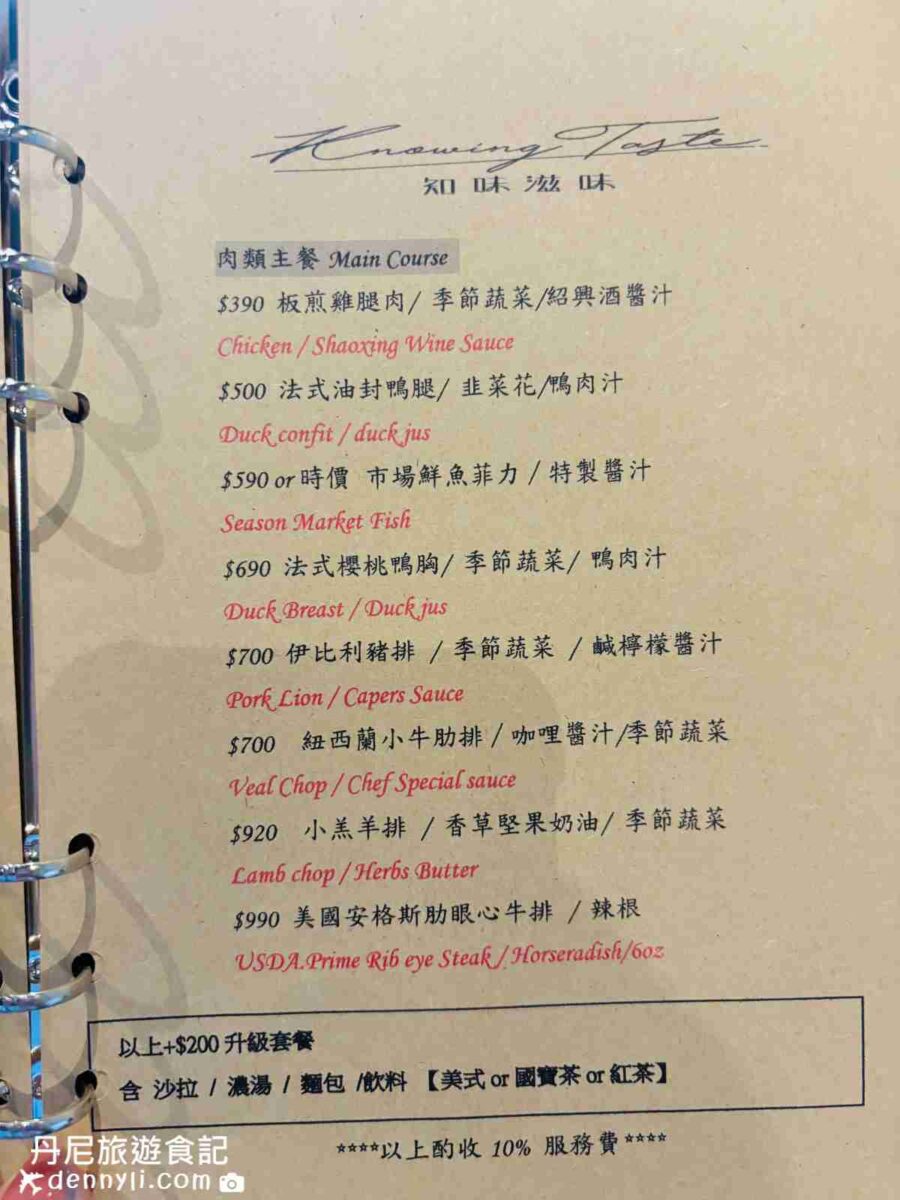 Knowing Taste
知味滋味
肉類主餐 Main Course
$390 板煎雞腿肉/ 季節蔬菜/紹興酒醬汁
Chicken / Shaoxing Wine Sauce
$500 法式油封鴨腿/ 韭菜花/鴨肉汁
Duck confit / duck jus
$590 or 時價 市場鮮魚菲力 / 特製醬汁
Season Market Fish
$690 法式櫻桃鴨胸/ 季節蔬菜/ 鴨肉汁
Duck Breast / Duck jus
$700 伊比利豬排 / 季節蔬菜 / 鹹檸檬醬汁
Pork Lion / Capers Sauce
$700 紐西蘭小牛肋排 / 咖哩醬汁/季節蔬菜
Veal Chop / Chef Special sauce
$920 小羔羊排 / 香草堅果奶油/ 季節蔬菜
Lamb chop / Herbs Butter
$990 美國安格斯肋眼心牛排 / 辣根
USDA.Prime Rib eye Steak / Horseradish/6oz
以上+$200 升級套餐
含 沙拉 / 濃湯 / 麵包 /飲料 【美式 or 國寶茶 or 紅茶】
****以上酌收 10% 服務費****
丹尼旅遊食記
dennyli.com